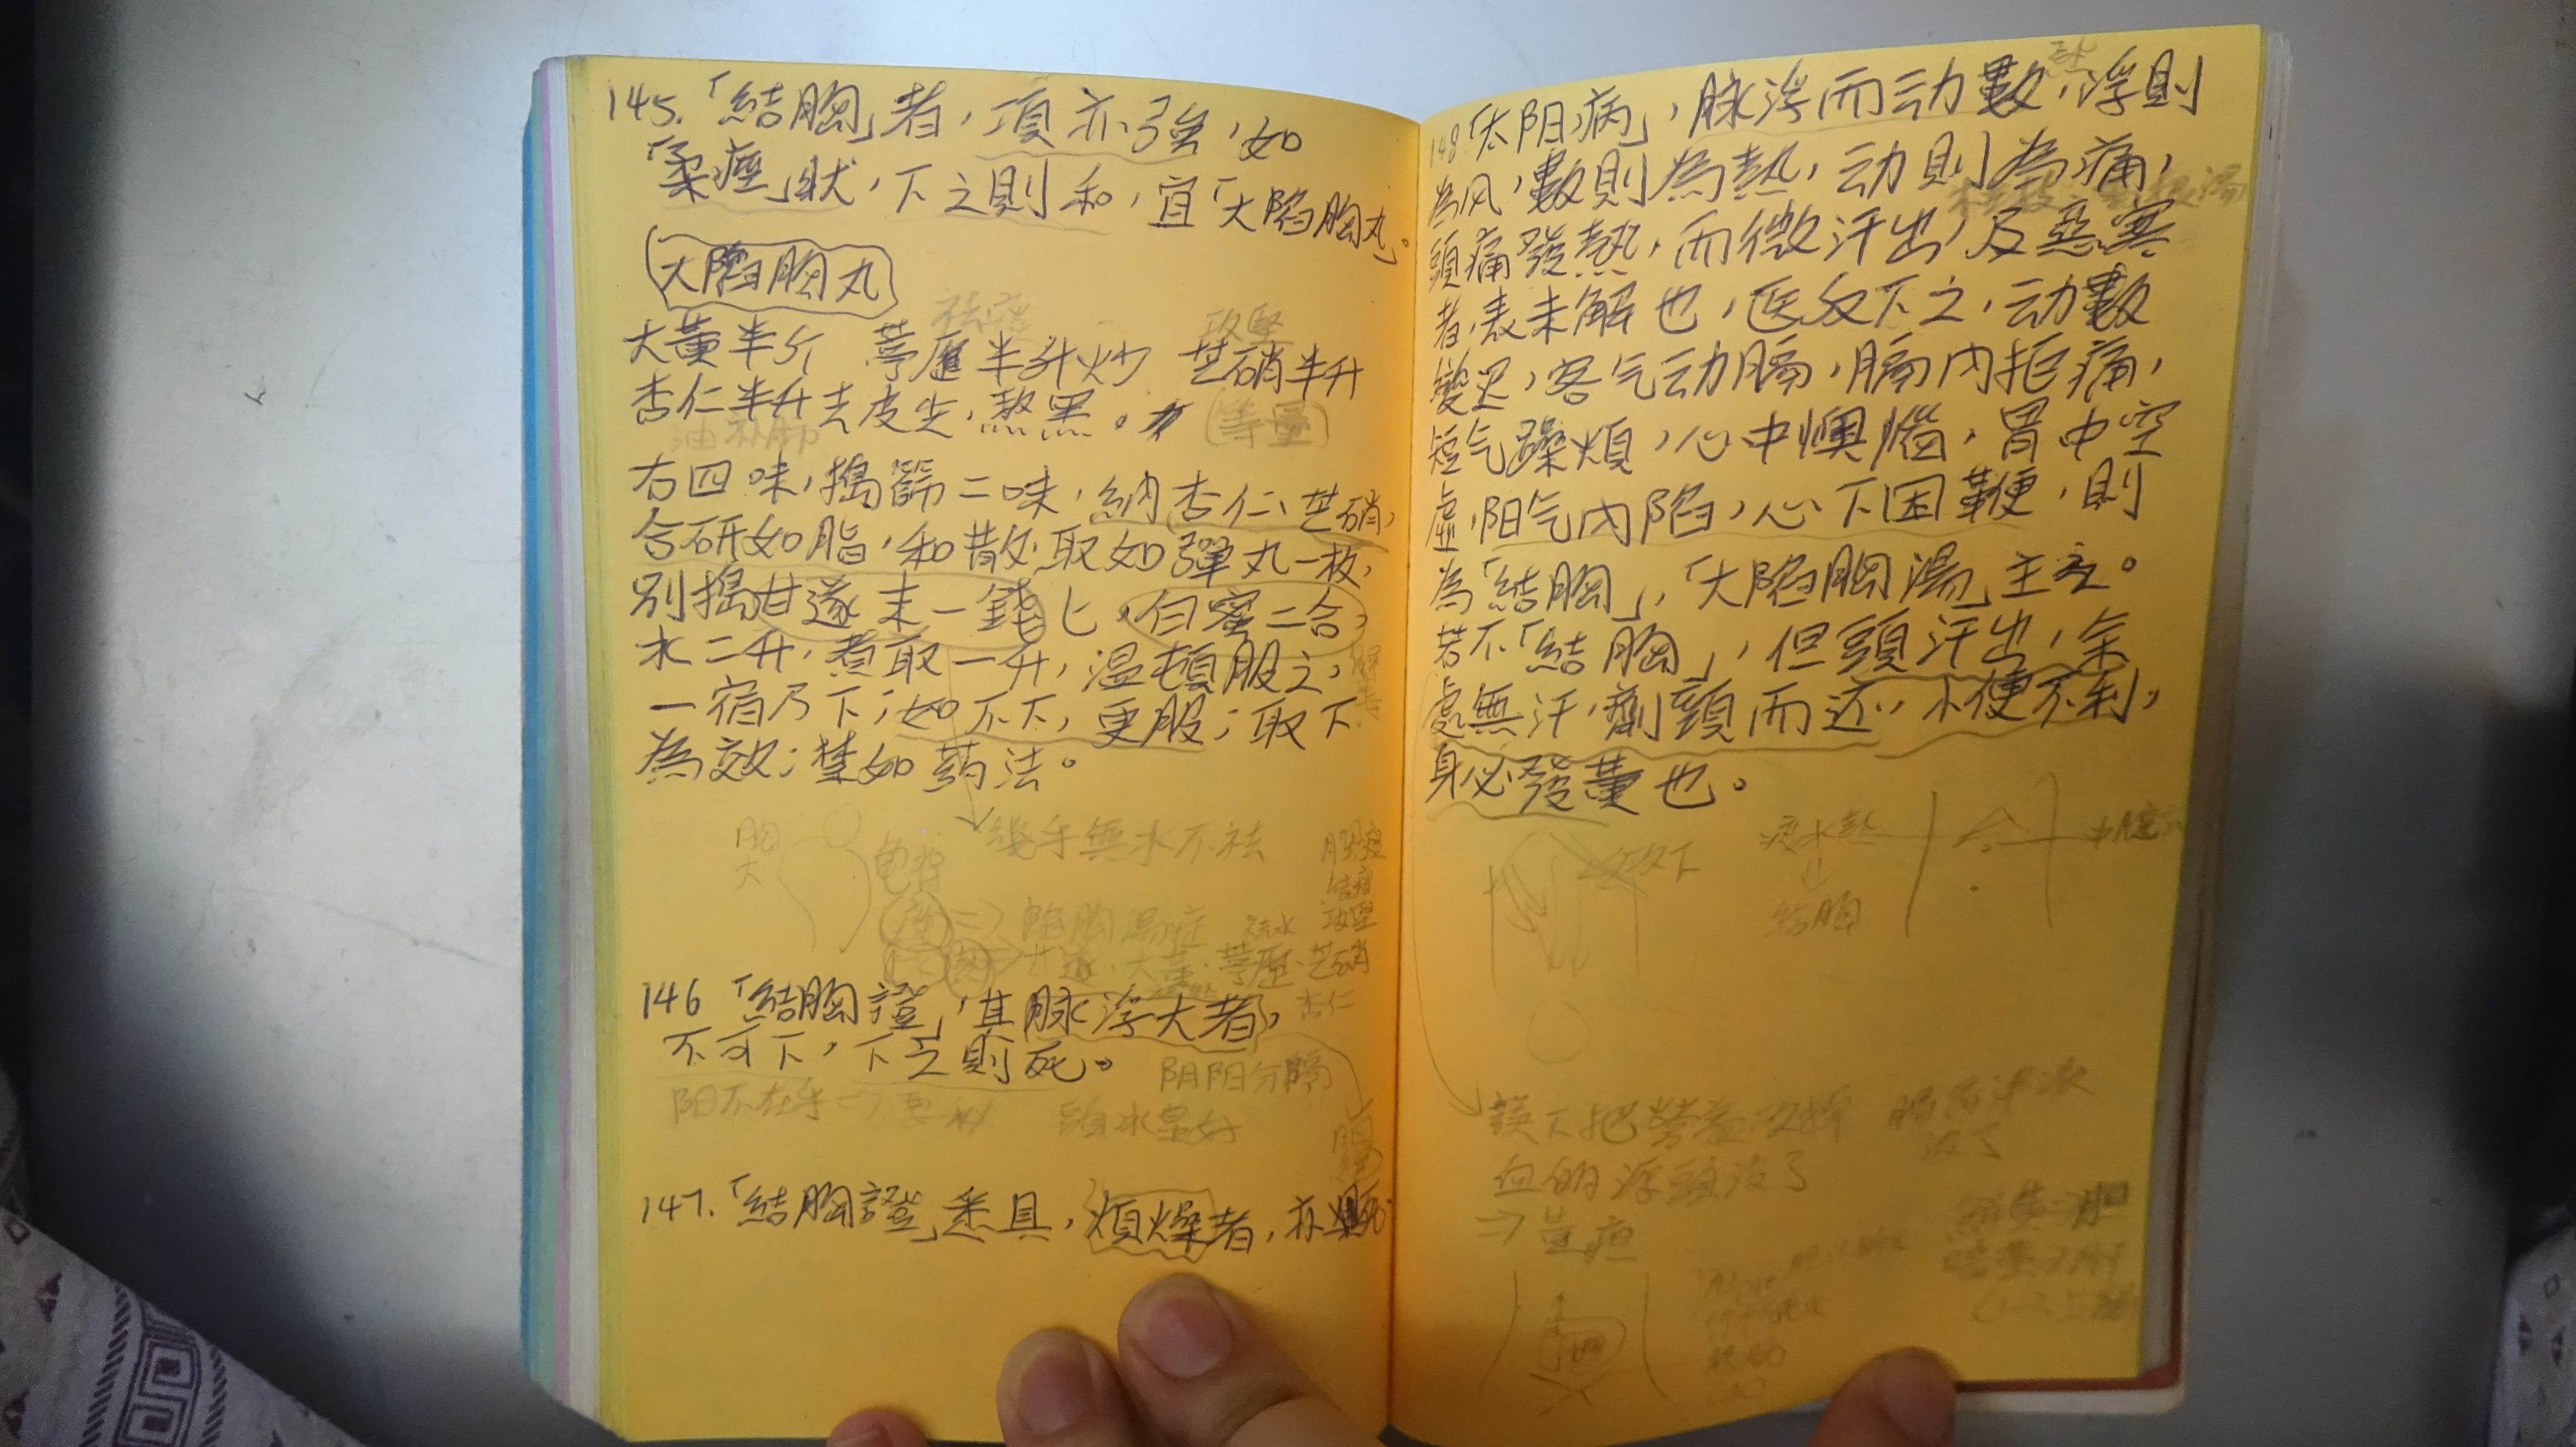 145.「結胸」者，項亦強，如
「柔痙」狀，下之則和，宜「大陷胸丸」。
大陷胸丸
祛痰
攻堅
大黃半斤 葶歷半升炒 芒硝半升
杏仁半升去皮尖，熬黑。
油 補肺
(等量)
右四味，搗篩二味，納杏仁、芒硝，
合研如脂，和散，取如彈丸一枚，
別搗甘遂末一錢匕，白蜜二合，
水二升，煮取一升，溫頓服之，
一宿乃下；如不下，更服；取下
為效；禁如药法。
幾乎無水不祛
胸
大
龟背
⇒ 陷胸湯症
祛水
攻堅
甘遂·大黃·葶歷·芒硝
杏仁
146 「結胸證」，其脉浮大者，
不可下，下之則死。
阴阳分隔
阳不在乎⇒
147.「結胸證」悉具，煩燥者，亦死
148「太阳病」，脉浮而动數，浮則
為风，數則為熱，动則為痛，
頭痛發熱，而微汗出，及惡寒
者，表未解也，医反下之，动數
變迟，客气动膈，膈內拒痛，
短气躁煩，心中懊憹，胃中空
虛，阳气內陷，心下因鞕，則
為「結胸」，「大陷胸湯」主之。
若不「結胸」，但頭汗出，余
處無汗，劑頸而还，小便不利，
身必發黃也。
攻下
痰水熱
結胸
誤下把營養攻掉
腸胃津液
沒了
血的浮頭沒了
⇒ 黃疸